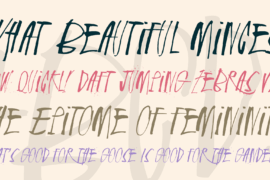 WHAT BEAUTIFUL MINCES
OW QUICKLY DAFT JUMPING ZEBRAS V
HE EPITOME OF FEMININI
AT'S GOOD FOR THE GOOSE IS GOOD FOR THE GANDE